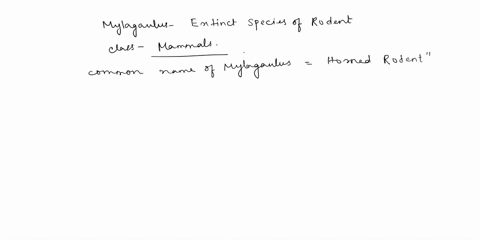 Mylagaulus- Extinct Species of Rodent
class- Mammals.
common name of Mylagaulus = Horned Rodent"